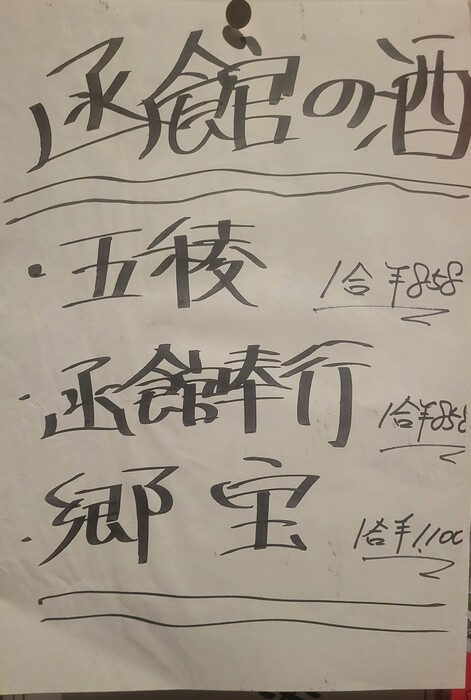 函館の酒
・五稜 1合 ¥858
・函館奉行 1合¥858
・郷宝 1合¥1,100